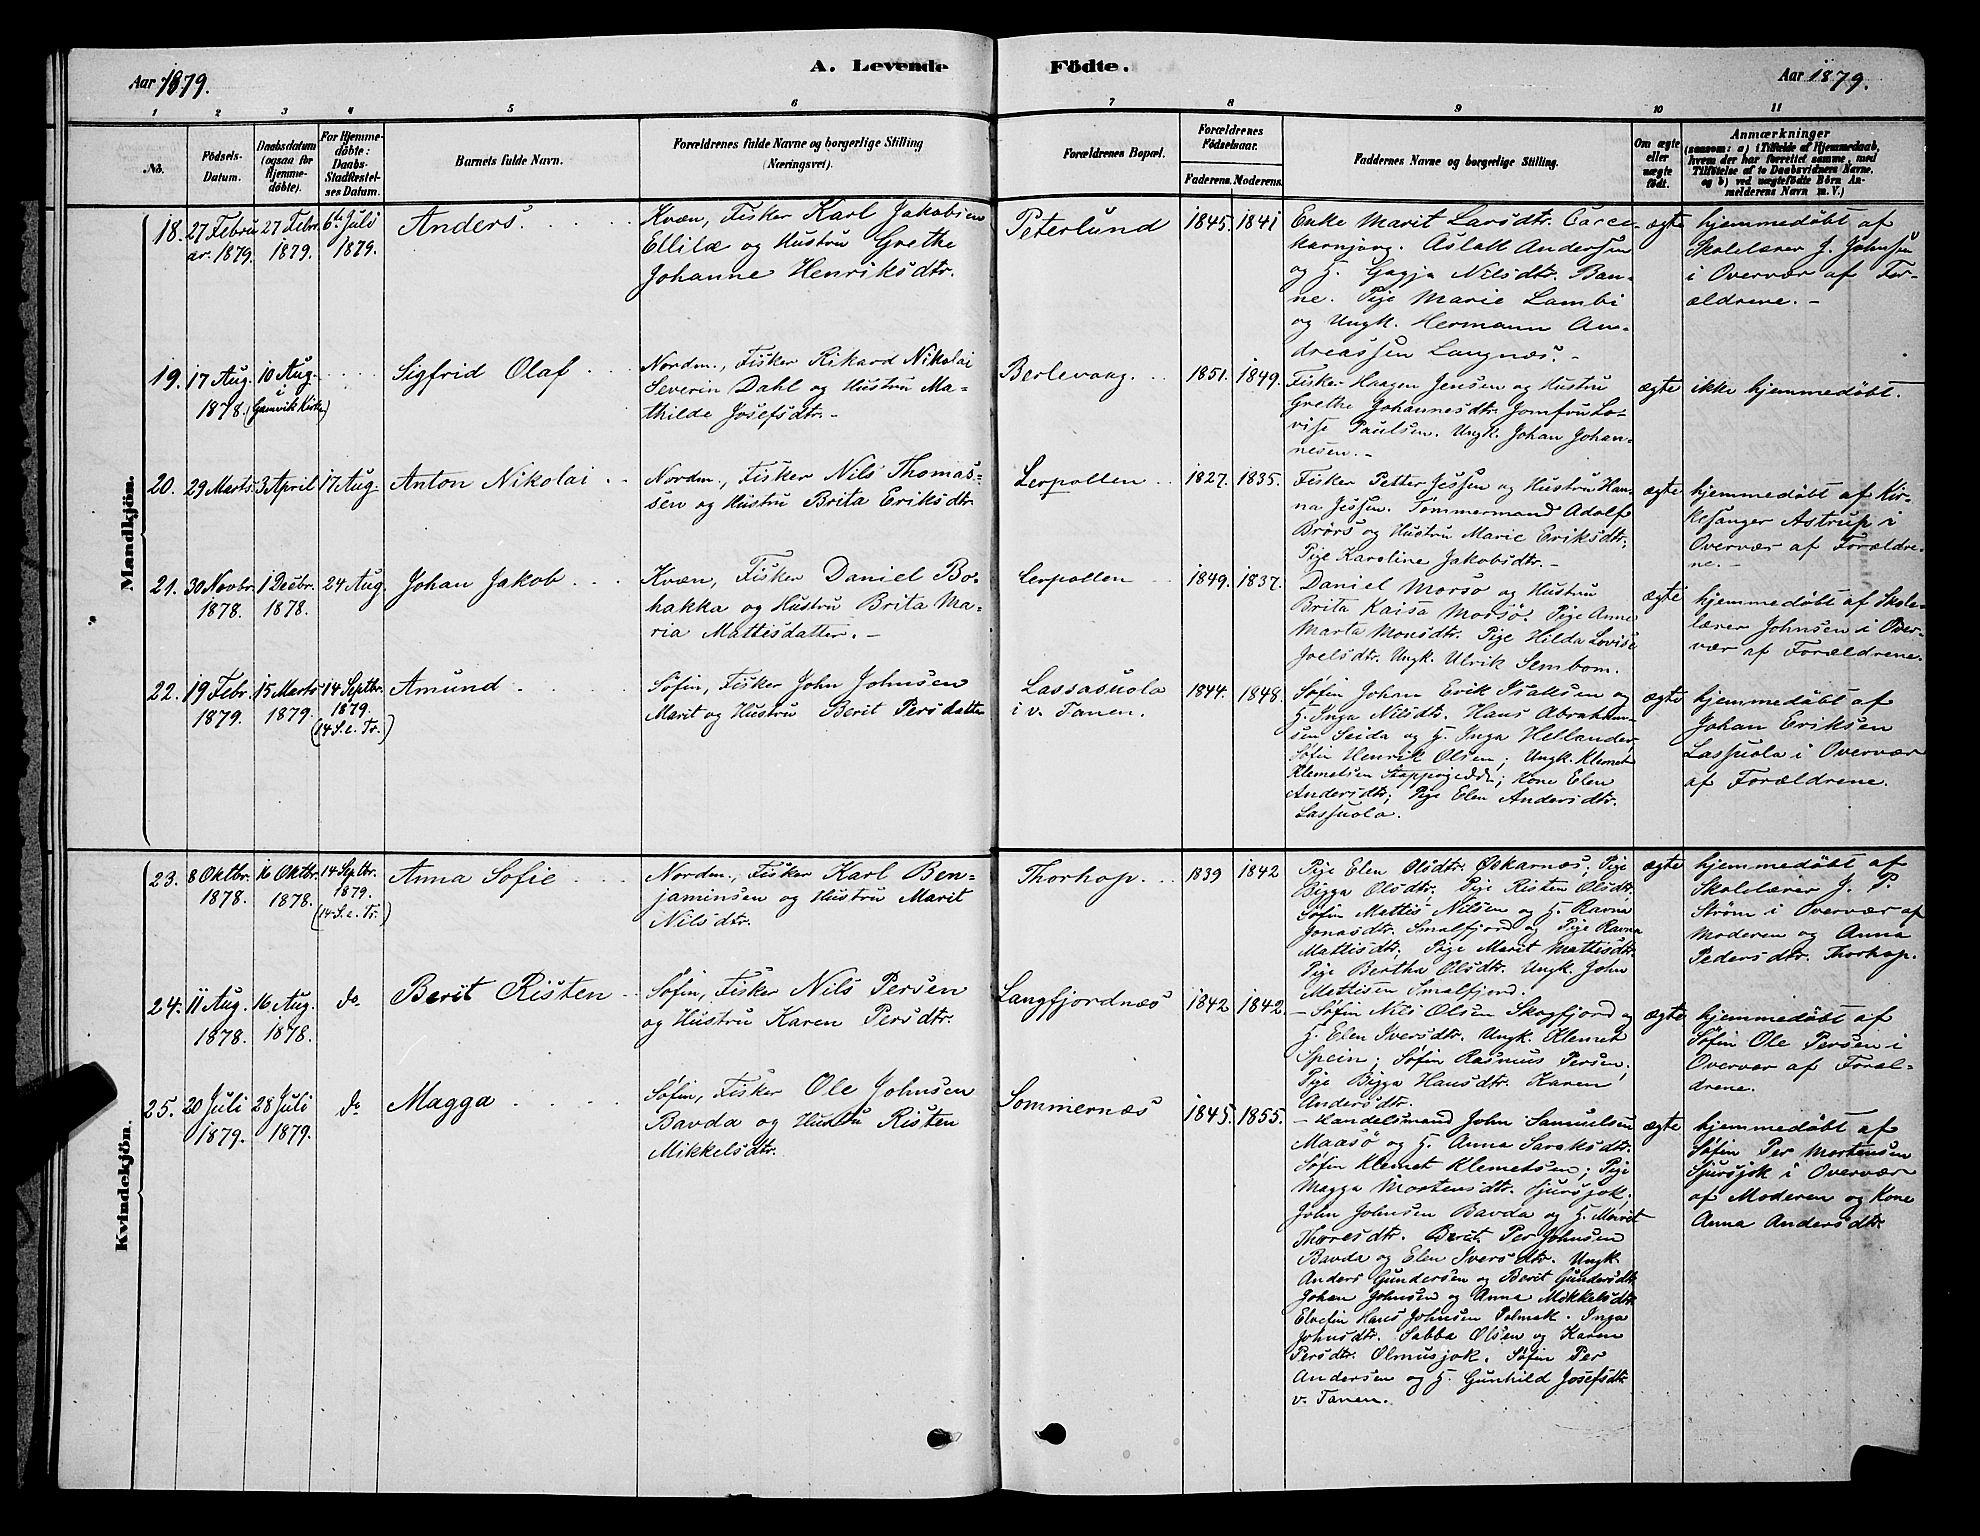 Aar 1879.
A. Levende Födte.
Aar 1879.
1 2 3 4 5 6 7 8 9 10 11
No.
Födsels-
Datum.
Daabsdatum
(ogsaa for
Hjemme-
döbte).
For Hjemme-
döbte:
Daabs-
Stadfæstel-
ses Datum.
Barnets fulde Navn.
Forældrenes fulde Navne og borgerlige Stilling
(Næringsvei).
Forældrenes Bopæl.
Forældrenes
Födselsaar.
Faderens. Moderens.
Faddernes Navne og borgerlige Stilling.
Om ægte
eller
uægte
født.
Anmærkninger
(saasom: a) i Tilfælde af Hjemmedaab,
hvem der har forrettet samme, med
Tilföielse af to Daabsvidners Navne,
og b) ved uægtefödte Börn An-
melderens Navn m. V.)
Mandkjön.
18. 27 Febru
ar. 1879.
27 Febr.
1879.
6te Juli
1879.
Anders.
Kvæn, Fisker Karl Jakobsen
Ellilæ og Hustru Grethe
Johanne Henriksdtr.
Peterlund
1845. 1841
Enke Marit Larsdtr.
Aslak Andersen
og H. Gagja Nilsdtr. Ban-
ne. Pige Marie Lambi
og Ungk. Hermann An-
dreassen Langnæs. -
ægte
hjemmedøbt af
Skolelærer J. Johnsen
i Overvær af For-
ældrene. -
19. 17 Aug.
1878.
10 Aug.
i
(Gamvik Kirke)
Sigfrid Olaf
Nordm., Fisker Rikard Nikolai
Severin Dahl og Hustru Ma-
thilde Josefsdtr. -
Berlevaag.
1851. 1849.
Fisker Haagen Jensen og Hustru
Grethe Johannesdtr. Jomfru Lo-
vise Paulsen. Ungk. Johan Johan-
nesen. -
ægte
ikke hjemmedøbt.
20. 29 Marts 3 April 17 Aug.
Anton Nikolai
Nordm., Fisker Nils Thomas-
sen og Hustru Brita Eriksdtr.
Lerpollen
1827. 1835.
Fisker Petter Jessen og Hustru Han-
na Jessen. Tømmermand Adolf
Brörs og Hustru Marie Eriksdtr,
Pige Karoline Jakobsdtr. -
ægte
hjemmedøbt af Kir-
kesanger Astrup i
Overvær af Forældre-
ne. -
21. 30 Novbr.
1878.
1 Decbr.
1878.
24 Aug.
Johan Jakob
Kvæn, Fisker Daniel Bo-
hakka og Hustru Brita Ma-
ria Mattisdatter. -
Lerpollen
1849. 1837.
Daniel Morsø og Hustru
Brita Kaisa Morsö. Pige Anne
Marta Monsdtr. Pige Hilda Lovise
Joelsdtr. Ungk. Ulrik Sembom.
ægte
hjemmedøbt af Skole-
lærer Johnsen i Over-
vær af Forældrene.
22. 19 Febr.
1879.
15 Marts
1879.
14 Septbr.
1879.
(14 S. e. Tr.)
Amund
Søfin, Fisker John Johnsen
Marit og Hustru Berit Persdatter
Lassasuola
i v. Tanen.
1844. 1848.
Søfin Johan Erik Isaksen og
H. Inga Nilsdtr. Hans Abraham-
sen Seida og H. Inga Hellander,
Søfin Henrik Olsen; Ungk. Klemet
Klemetsen Stappogiedde; Kone Elen
Andersdtr; Pige Elen Andersdtr.
Lassuola.
ægte
hjemmedøbt af
Johan Eriksen
Lassuola i Overvær
af Forældrene.
Kvindekjön.
23. 8 Oktbr.
1878.
16 Oktbr.
1878.
14 Septbr.
1879.
(14 S. e. Tr.)
Anna Sofie
Nordm., Fisker Karl Ben-
jaminsen og Hustru Marit
Nilsdtr.
Thorhop.
1839 1842
Pige Elen Olsdtr. Oskarnæs; Pige
Bigga Olsdtr; Pige Risten Olsdtr;
Søfin Mattis Nilsen og H. Ravna
Jonasdtr. Smalfjord og Pige Ravna
Mattisdtr; Pige Marit Mattisdtr.
Pige Bertha Olsdtr. Ungk. John
Mattisen Smalfjord.
ægte
hjemmedøbt af
Skolelærer J. P.
Strøm i Overvær af
Moderen og Anna
Pedersdtr. Thorhop.
24. 11 Aug.
1878.
16 Aug.
1878.
do
Berit Risten
Søfin, Fisker Nils Persen
og Hustru Karen Persdtr.
Langfjordnæs
1842 1842.
- Søfin Nils Olsen Skogfjord og
H. Elen Iversdtr. Ungk. Klemet
Spein; Søfin Rasmus Persen;
Pige Bigga Hansdtr. Karen
Andersdtr.
ægte
hjemmedøbt af
Søfin Ole Persen i
Overvær af Foræl-
drene.
25. 20 Juli
1879.
28 Juli
1879.
do
Magga
Søfin, Fisker Ole Johnsen
Bavda og Hustru Risten
Mikkelsdtr.
Sommernæs
1845. 1855.
- Handelsmand John Samuelsen
Maasö og H. Anna Saraksdtr.
Søfin Klemet Klemetsen; Pige
Magga Mortensdtr. Sjursjok.
John Johnsen Bavda og H. Marit
Thoresdtr. Berit. Per Johnsen
Bavda og Elen Iversdtr. Ungk.
Anders Gundersen og Berit Gundersdtr.
Johan Johnsen og Anna Mikkelsdtr.
Elvefin Hans Johnsen Polmak. Inga
Johnsdtr. Sabba Olsen og Karen
Persdtr. Olmusjok. Søfin Per
Andersen og H. Gunhild Josefsdtr.
v. Tanen.
ægte
hjemmedøbt af
Søfin Per Mortensen
Sjursjok i Overvær
af Moderen og Kone
Anna Andersdtr.